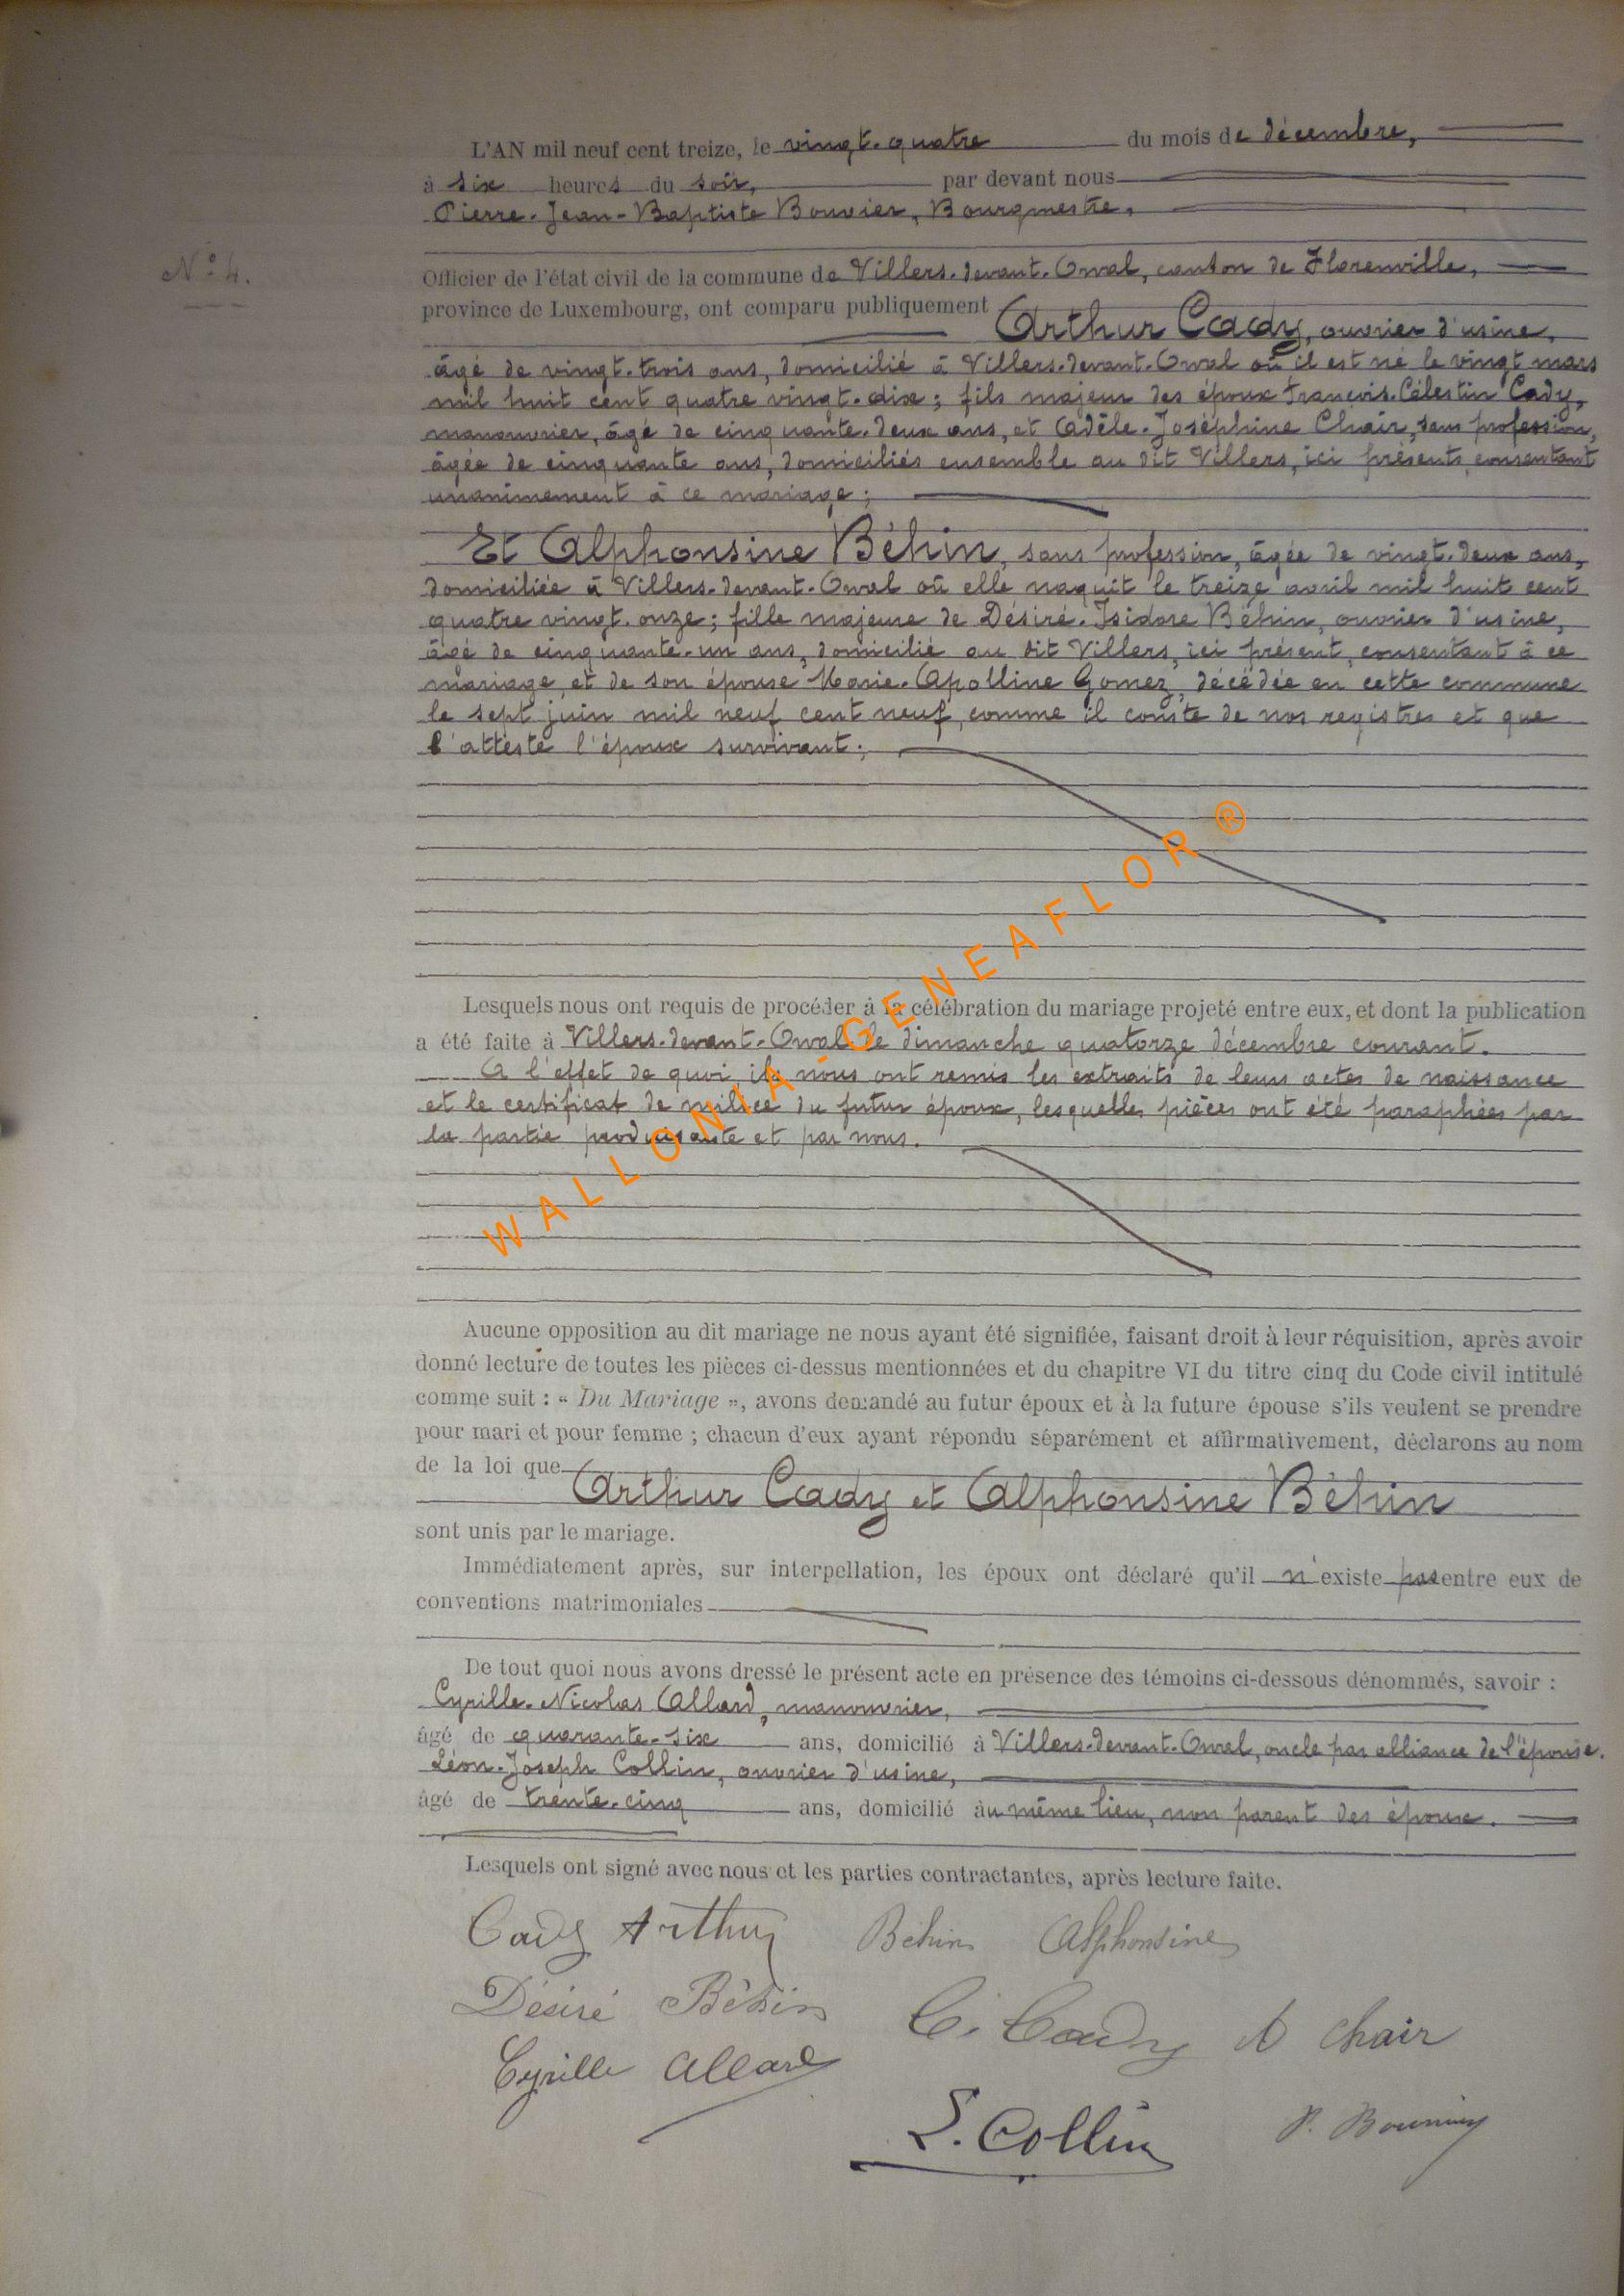 L'AN mil neuf cent treize, le vingt-quatre du mois de décembre,
à six heures du soir, par devant nous
Pierre-Jean-Baptiste Bouvier, Bourgmestre,
N° 4.
Officier de l'état civil de la commune de Villers-devant-Orval, canton de Florenville,
province de Luxembourg, ont comparu publiquement
Arthur Cady, ouvrier d'usine,
âgé de vingt-trois ans, domicilié à Villers-devant-Orval où il est né le vingt mars
mil huit cent quatre vingt-dix ; fils majeur des époux François-Célestin Cady,
manouvrier, âgé de cinquante-deux ans, et Adèle-Joséphine Chair, sans profession,
âgée de cinquante ans, domiciliés ensemble au dit Villers, ici présents, consentant
unanimement à ce mariage ;
Et Alphonsine Béhin, sans profession, âgée de vingt-deux ans,
domiciliée à Villers-devant-Orval où elle naquit le treize avril mil huit cent
quatre vingt-onze ; fille majeure de Désiré-Isidore Béhin, ouvrier d'usine,
âgé de cinquante-un ans, domicilié au dit Villers, ici présent, consentant à ce
mariage, et de son épouse Marie-Apolline Gomez, décédée en cette commune
le sept juin mil neuf cent neuf, comme il conste de nos registres et que
l'atteste l'époux survivant ;
WALLONIA-GENEAFLOR®
Lesquels nous ont requis de procéder à la célébration du mariage projeté entre eux, et dont la publication
a été faite à Villers-devant-Orval le dimanche quatorze décembre courant.
A l'effet de quoi ils nous ont remis les extraits de leurs actes de naissance
et le certificat de milice du futur époux, lesquelles pièces ont été paraphées par
la partie produisante et par nous.
Aucune opposition au dit mariage ne nous ayant été signifiée, faisant droit à leur réquisition, après avoir
donné lecture de toutes les pièces ci-dessus mentionnées et du chapitre VI du titre cinq du Code civil intitulé
comme suit : « Du Mariage », avons demandé au futur époux et à la future épouse s'ils veulent se prendre
pour mari et pour femme ; chacun d'eux ayant répondu séparément et affirmativement, déclarons au nom
de la loi que
Arthur Cady et Alphonsine Béhin
sont unis par le mariage.
Immédiatement après, sur interpellation, les époux ont déclaré qu'il n'existe pas entre eux de
conventions matrimoniales
De tout quoi nous avons dressé le présent acte en présence des témoins ci-dessous dénommés, savoir :
Cyrille-Nicolas Allard, manouvrier,
âgé de quarante-six ans, domicilié à Villers-devant-Orval, oncle par alliance de l'épouse.
Léon-Joseph Collin, ouvrier d'usine,
âgé de trente-cinq ans, domicilié au même lieu, non parent des époux.
Lesquels ont signé avec nous et les parties contractantes, après lecture faite.
Cady Arthur Béhin Alphonsine
Désiré Béhin C. Cady A Chair
Cyrille Allard
L. Collin P. Bouvier